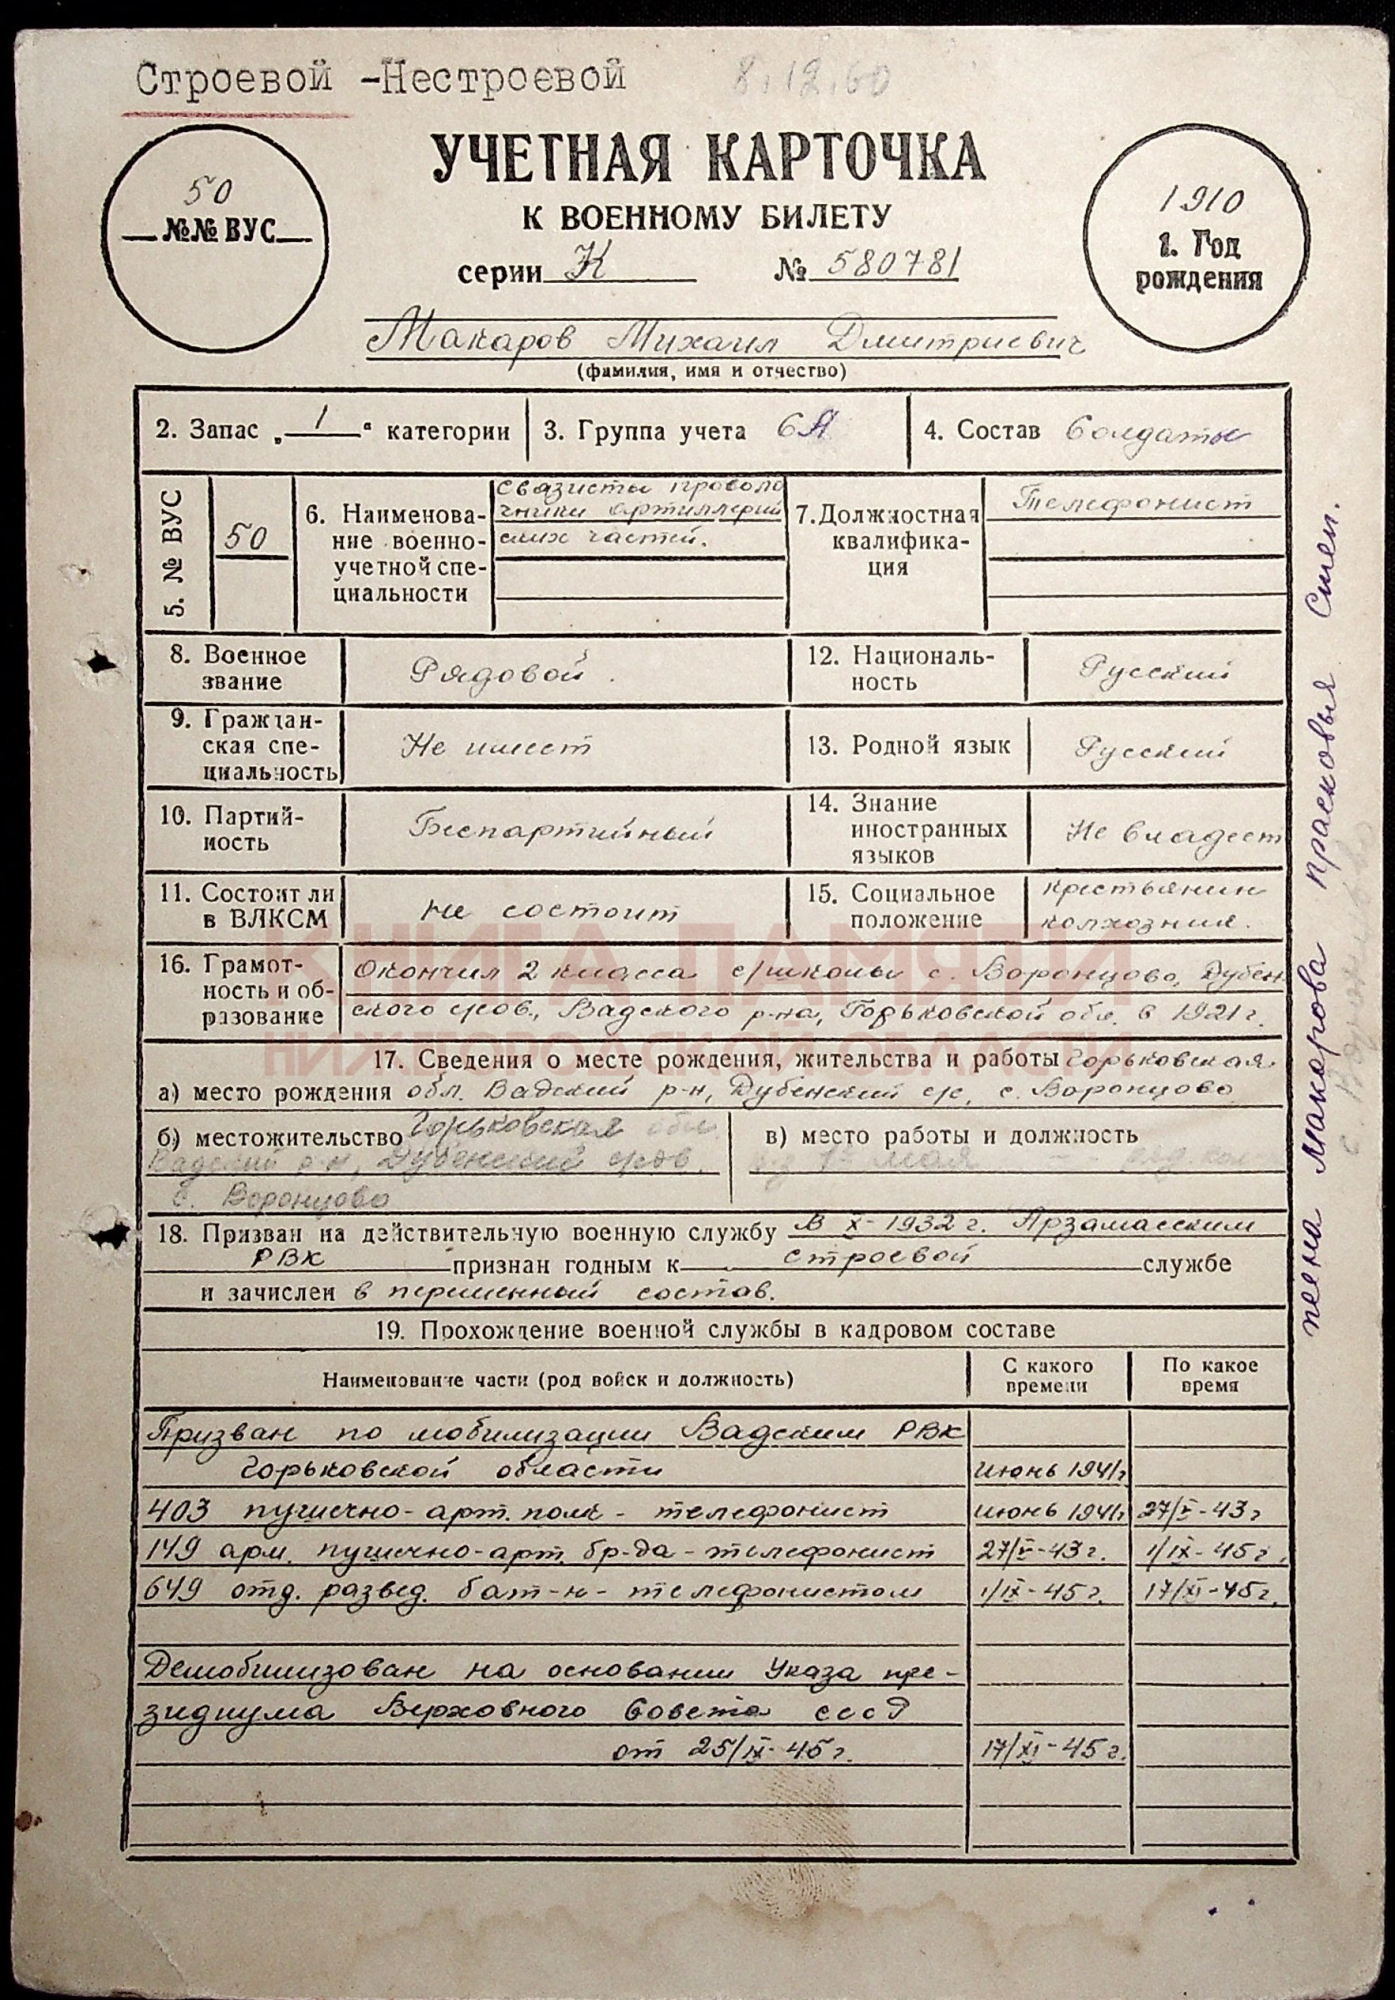 Строевой -Нестроевой 8.12.60
УЧЕТНАЯ КАРТОЧКА
К ВОЕННОМУ БИЛЕТУ
50
№№ ВУС
1910
1. Год
рождения
серии К № 580781
Макаров Михаил Дмитриевич
(фамилия, имя и отчество)
2. Запас „1“ категории
3. Группа учета 6А
4. Состав Солдаты
5. № ВУС
50
6. Наименова-
ние военно-
учетной спе-
циальности
связисты проволо
чники артиллерий
ских частей.
7. Должностная
квалифика-
ция
Телефонист
8. Военное
звание
Рядовой.
12. Националь-
ность
Русский
9. Граждан-
ская спе-
циальность
Не имеет
13. Родной язык
Русский
10. Партий-
ность
Беспартийный
14. Знание
иностранных
языков
Не владеет
11. Состоит ли
в ВЛКСМ
Не состоит
15. Социальное
положение
крестьянин
колхозник.
16. Грамот-
ность и об-
разование
Окончил 2 класса с/школы с. Воронцово, Дубен
ского с/сов., Вадского р-на, Горьковской обл. в 1921 г.
КНИГА ПАМЯТИ
НИЖЕГОРОДСКОЙ ОБЛАСТИ
17. Сведения о месте рождения, жительства и работы Горьковская
а) место рождения обл. Вадский р-н, Дубенский с/с, с. Воронцово
б) местожительство Горьковская обл.
Вадский р-н, Дубенский с/сов.
с. Воронцово
в) место работы и должность
мая
18. Призван на действительную военную службу В X-1932 г. Арзамасским
РВК признан годным к строевой службе
и зачислен в переменный состав.
19. Прохождение военной службы в кадровом составе
Наименование части (род войск и должность)
С какого
времени
По какое
время
Призван по мобилизации Вадским РВК
Горьковской области июнь 1941г
403 пушечно-арт. полк - телефонист июнь 1941г 27/V-43 г
149 арм. пушечно-арт. бр-да - телефонист 27/V-43 г. 1/IX-45 г.
649 отд. развед. бат-н - телефонистом 1/IX-45 г. 17/XI-45 г.
Демобилизован на основании Указа пре-
зидиума Верховного Совета СССР
от 25/IX-45 г. 17/XI-45 г.
жена Макарова прасковья Степ.
с. Воронцово